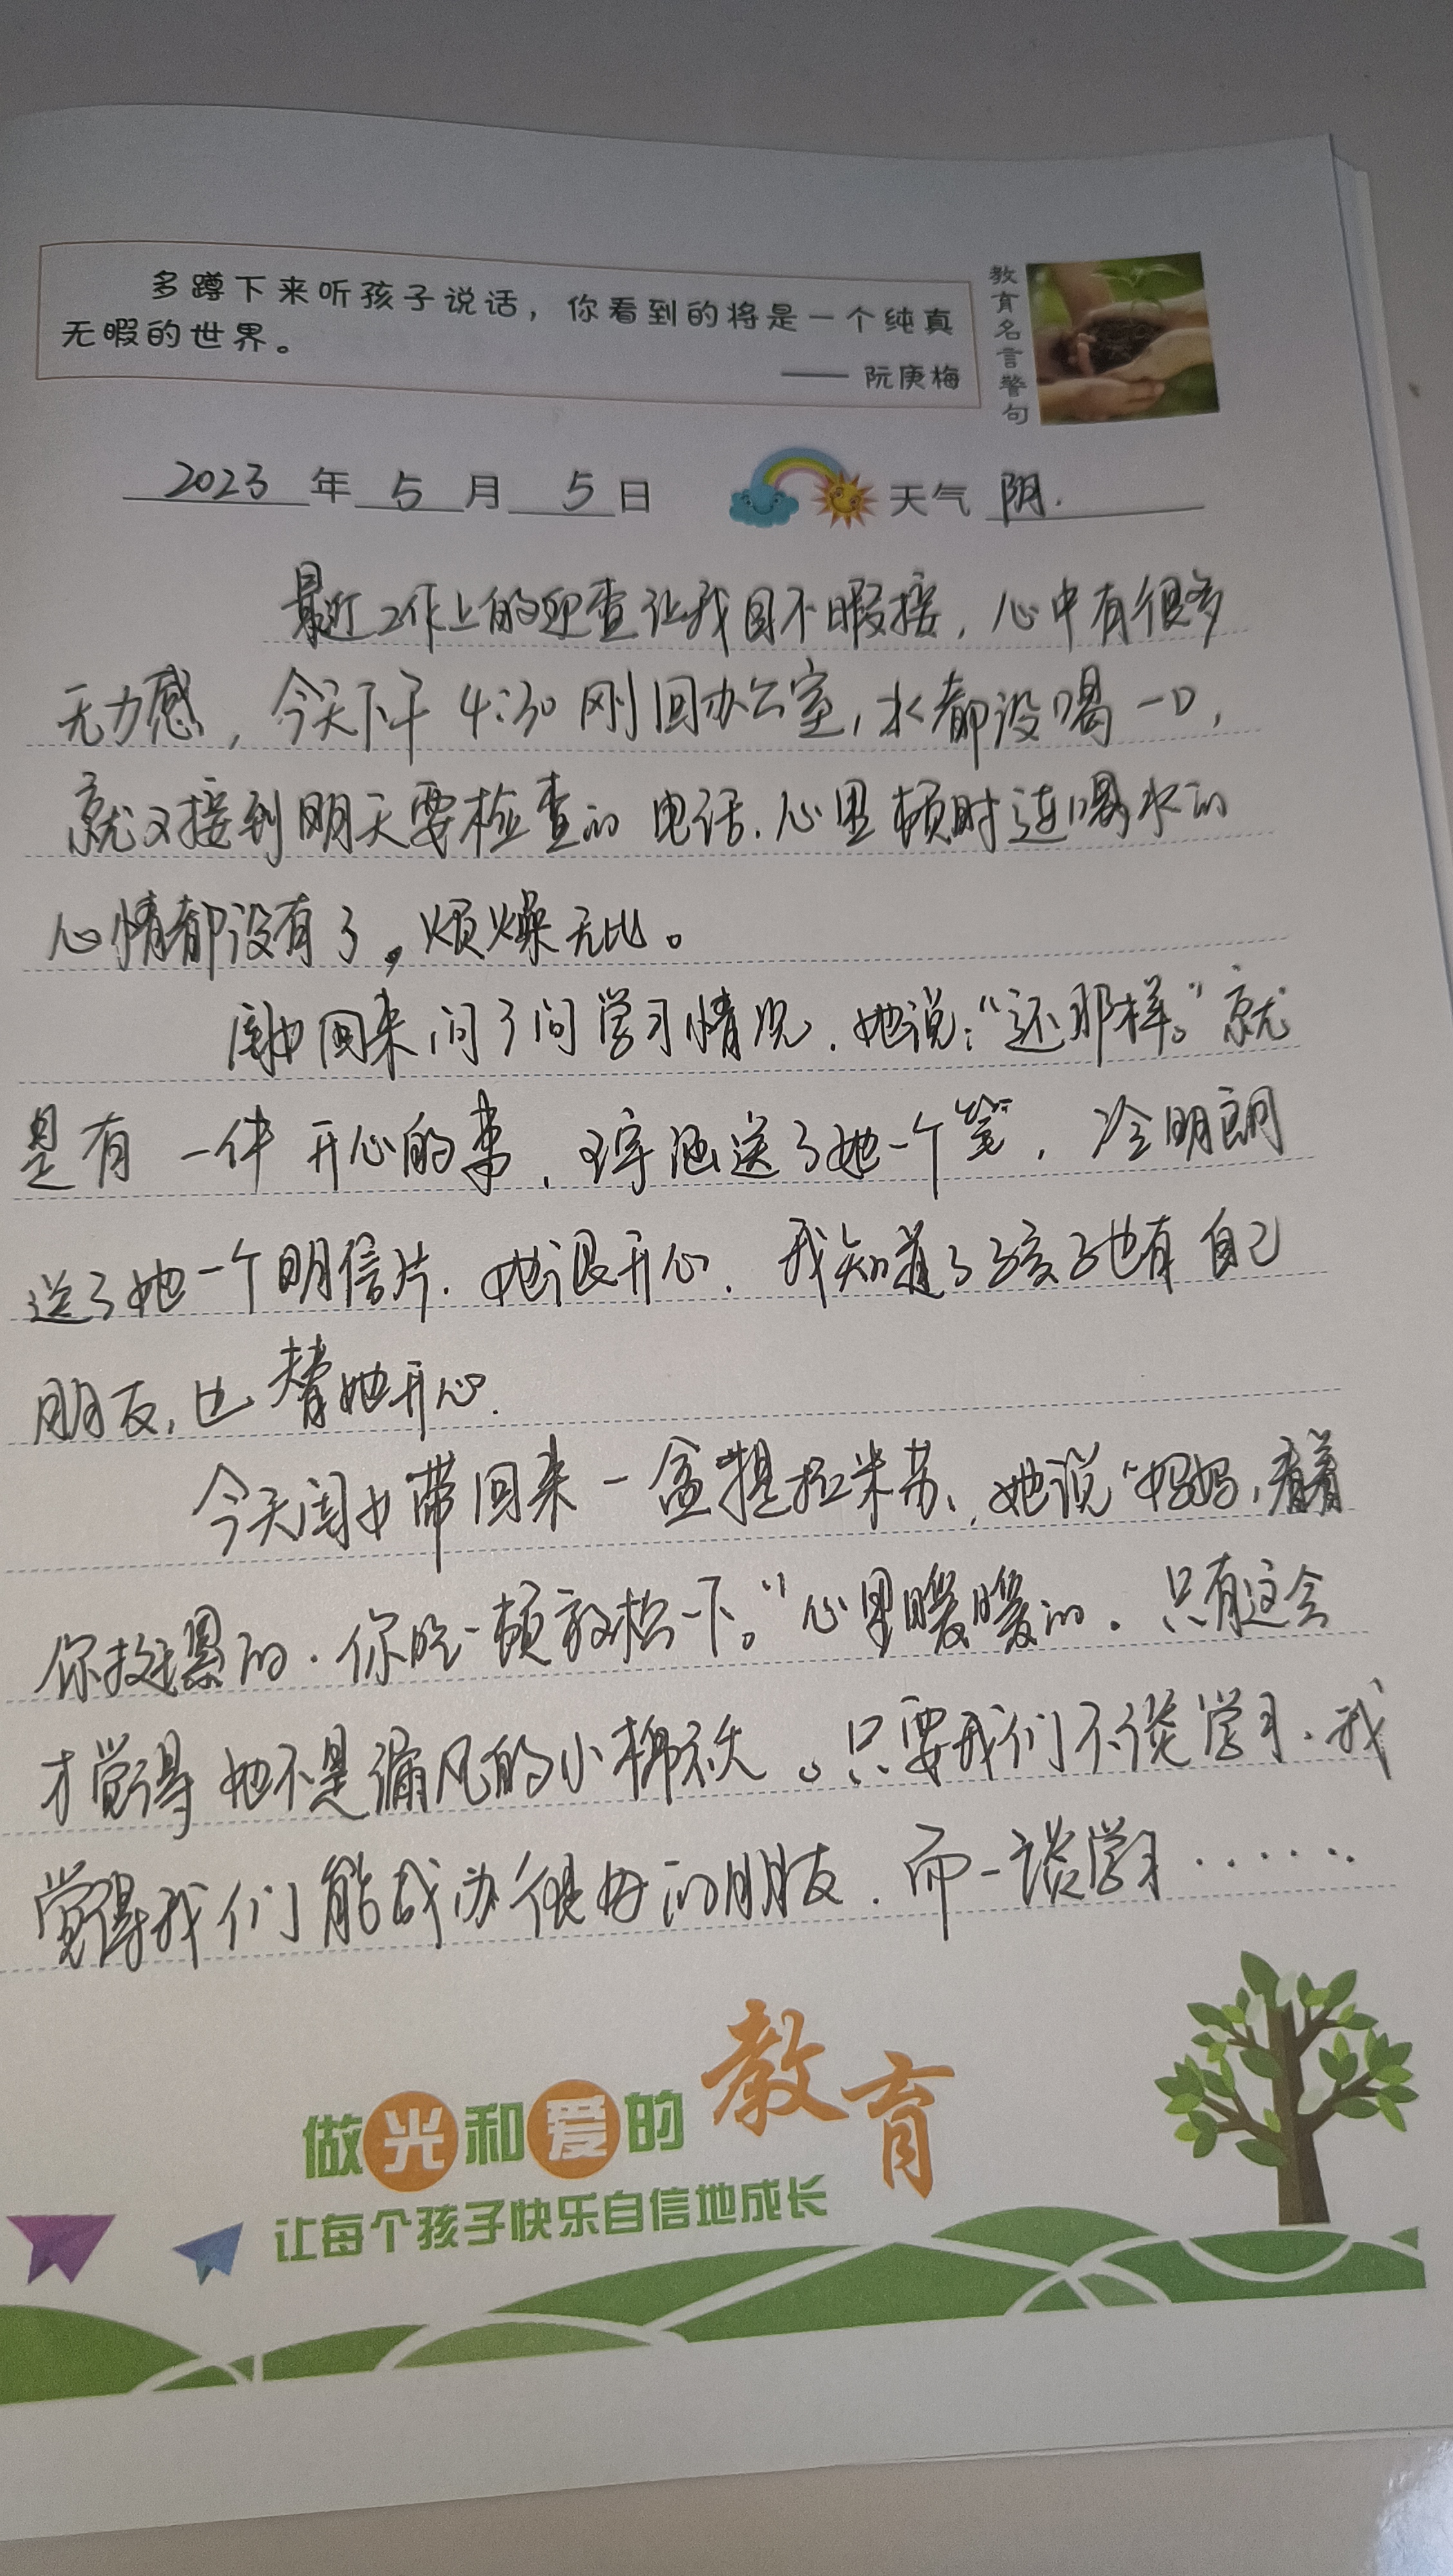 多蹲下来听孩子说话，你看到的将是一个纯真
无暇的世界。
—— 阮庚梅
教育名言警句
2023 年 5 月 5 日 天气 阴.
最近工作上的迎查让我目不暇接，心中有很多
无力感，今天下午 4:30 刚回办公室，水都没喝一口，
就又接到明天要检查的电话.心里顿时连喝水的
心情都没有了，烦燥无比。
闺女回来问了问学习情况.她说：“还那样。”就
是有一件开心的事，涵送了她一个笔，冷明朗
送了她一个明信片.她很开心.我知道了孩子也有自己
朋友，也替她开心.
今天闺女带回来一盒提拉米苏，她说“妈妈，看着
你挺累的.你吃一顿放松一下。”心里暖暖的.只有这会
才觉得她不是漏风的小棉袄。只要我们不谈学习.我
觉得我们能成为很好的朋友.而一谈学习……
做光和爱的教育
让每个孩子快乐自信地成长